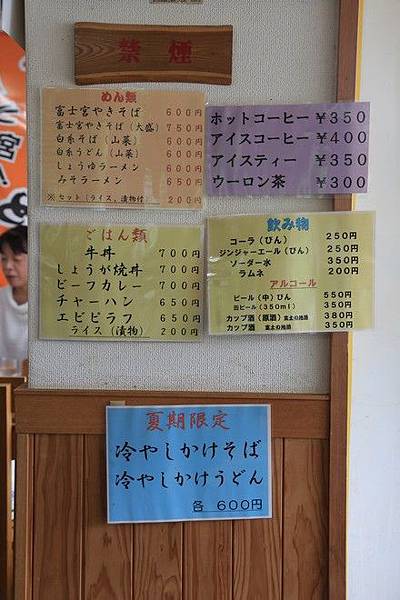 禁煙
めん類
富士宮やきそば 600円
富士宮やきそば(大盛) 750円
白糸そば(山菜) 600円
白糸うどん(山菜) 600円
しょうゆラーメン 600円
みそラーメン 650円
※セット(ライス、漬物付) 200円
ホットコーヒー ¥350
アイスコーヒー ¥400
アイスティー ¥350
ウーロン茶 ¥300
ごはん類
牛丼 700円
しょうが焼丼 700円
ビーフカレー 700円
チャーハン 650円
エビピラフ 650円
ライス(漬物) 200円
飲み物
コーラ(びん) 250円
ジンジャーエール(びん) 250円
ソーダー水 350円
ラムネ 200円
アルコール
ビール(中)びん 550円
缶ビール(350ml) 350円
カップ酒(原酒) 富士の地酒 380円
カップ酒 富士の地酒 350円
夏期限定
冷やしかけそば
冷やしかけうどん
各 600円